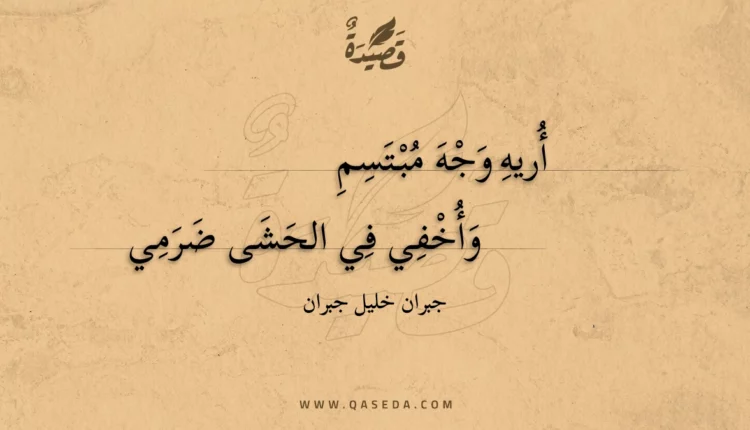 قَصِيدَةٌ
أُريهِ وَجْهَ مُبْتَسِمِ
وَأُخْفِي فِي الحَشَى ضَرَمِي
جبران خليل جبران
WWW.QASEDA.COM